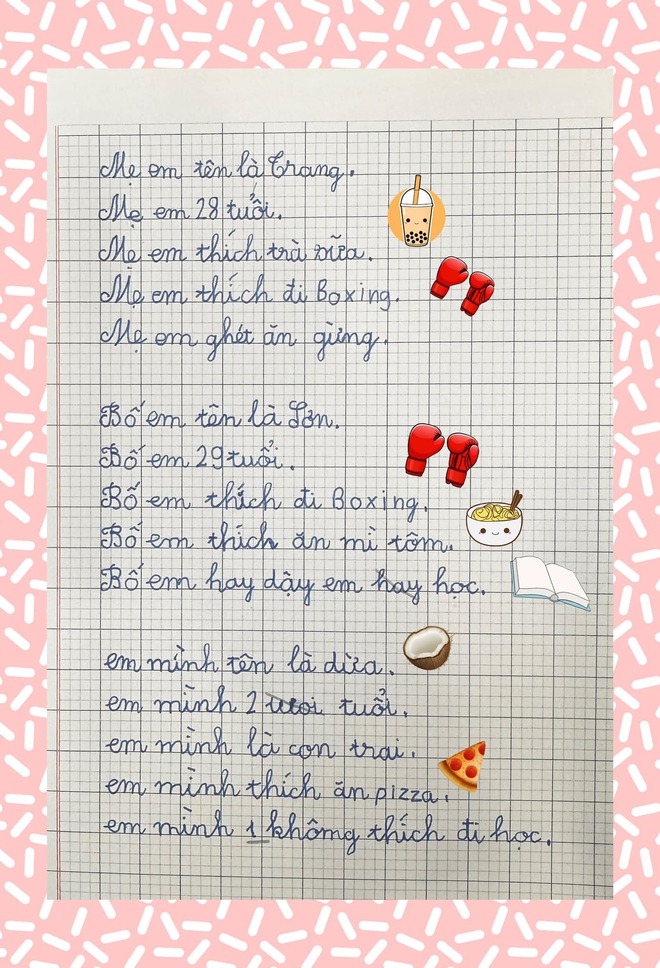 Mẹ em tên là Trang.
Mẹ em 28 tuổi.
Mẹ em thích trà sữa.
Mẹ em thích đi Boxing.
Mẹ em ghét ăn gừng.
Bố em tên là Sơn.
Bố em 29 tuổi.
Bố em thích đi Boxing.
Bố em thích ăn mì tôm.
Bố em hay dậy em hay học.
em mình tên là dừa.
em mình 2 tuổi.
em mình là con trai.
em mình thích ăn pizza.
em mình không thích đi học.